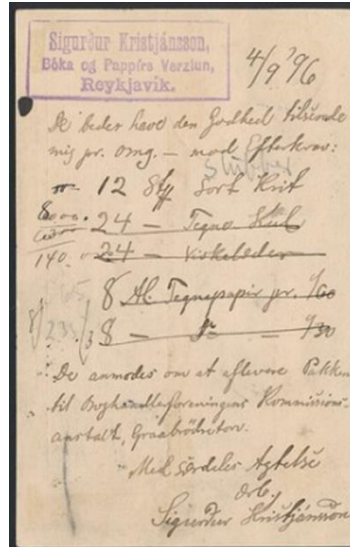 Sigurður Kristjánsson,
Bóka og Pappírs Verzlun,
Reykjavik.
4/9 '96
De bedes have den Godhed tilsende
mig pr. omg. — mod Efterkrav:
12 Stk Sort Krit
24 — Tegne Kul
140. 24 — Viskelæder
8 Al. Tegnepapir pr.
8 — —
De anmodes om at aflevere Pakken
til Boghandlerforeningens Kommissions-
anstalt, Graabrødretorv.
Med særdeles Agtelse
Sigurður Kristjánsson